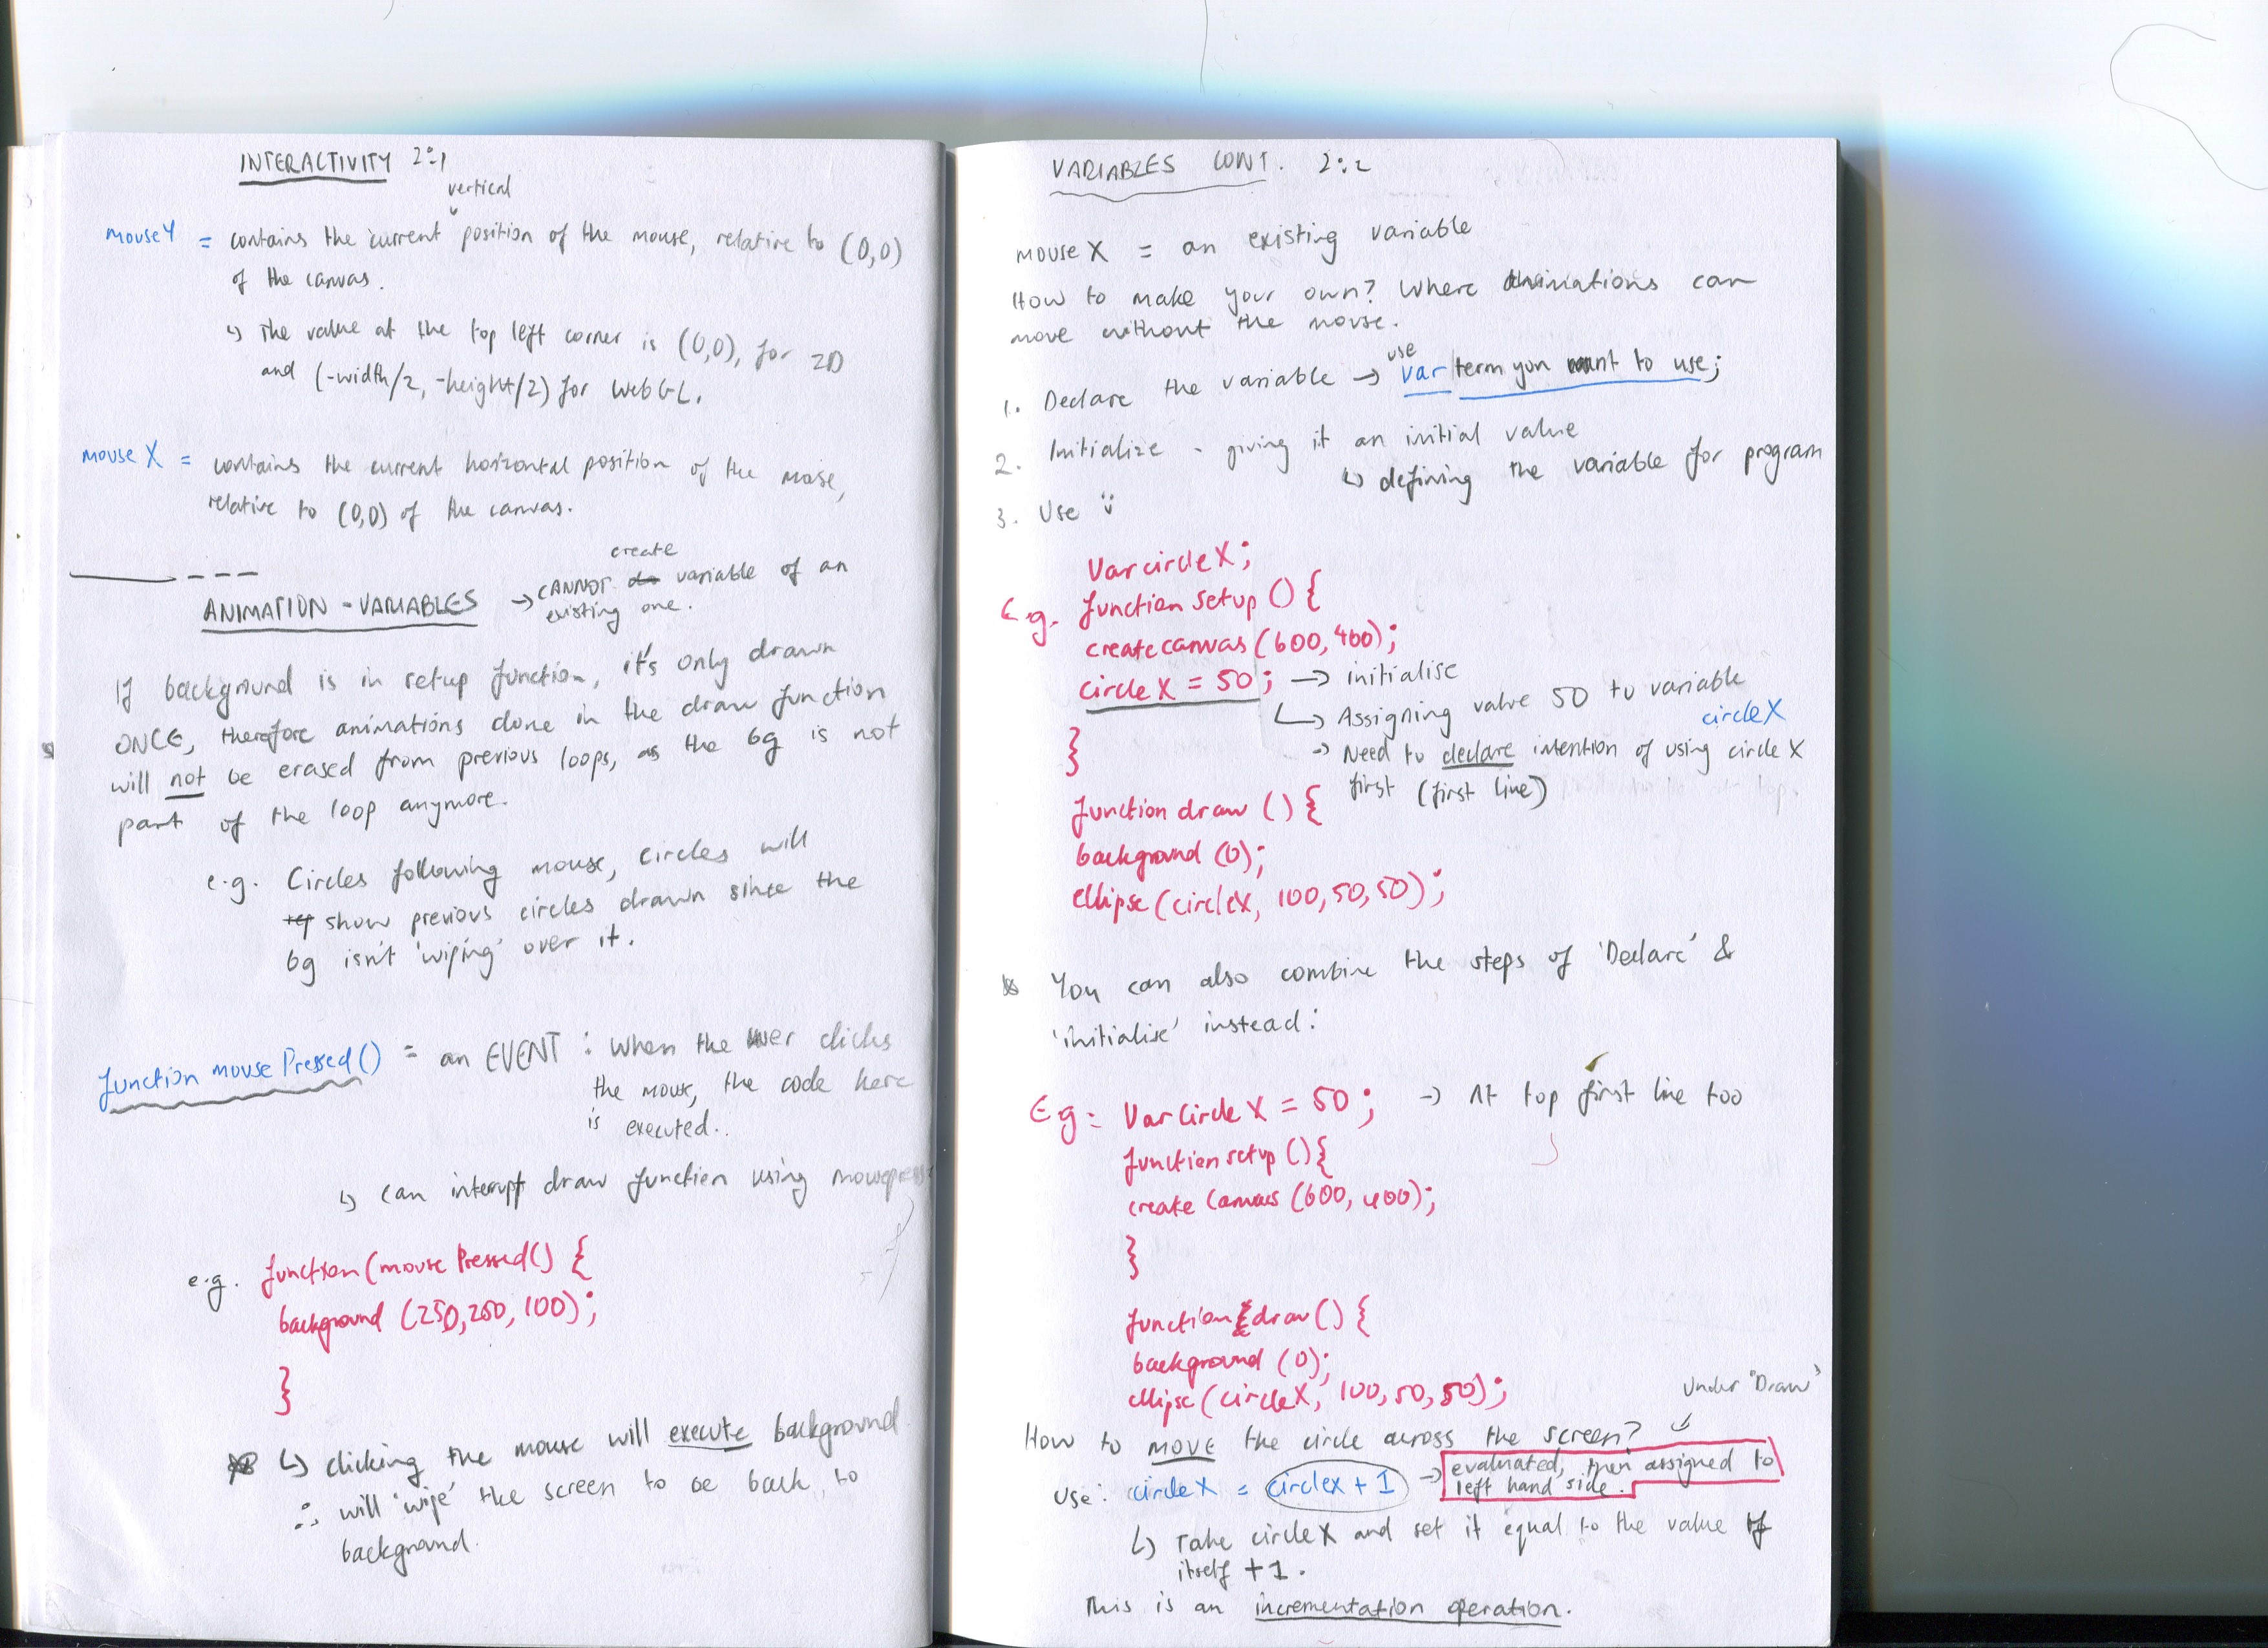 INTERACTIVITY 2:1
vertical
mouseY = contains the current position of the mouse, relative to (0,0)
of the canvas.
↳ The value at the top left corner is (0,0), for 2D
and (-width/2, -height/2) for WebGL.
mouse X = contains the current horizontal position of the mose,
relative to (0,0) of the canvas.
create
ANIMATION - VARIABLES → CANNOT variable of an
existing one.
If background is in setup function, it's only drawn
ONCE, therefore animations done in the draw function
will not be erased from previous loops, as the bg is not
part of the loop anymore.
e.g. Circles following mouse, circles will
show previous circles drawn since the
bg isn't 'wiping' over it.
function mousePressed() = an EVENT : When the user clicks
the mouse, the code here
is executed..
↳ can interrupt draw function using mousepress
e.g. function(mousePressed() {
background (250,250,100);
}
↳ clicking the mouse will execute background
∴ will 'wipe' the screen to be back to
background.
VARIABLES CONT. 2:2
mouse X = an existing variable
How to make your own? Where animations can
move without the mouse.
use
1. Declare the variable → var term you want to use;
2. Initialize - giving it an initial value
↳ defining the variable for program
3. Use
Var circleX;
E.g. function setup () {
createcanvas (600,400);
circleX = 50; → initialise
↳ Assigning value 50 to variable
circleX
→ Need to declare intention of using circle X
first (first line)
}
function draw () {
background (0);
ellipse (circleX, 100,50,50);
* You can also combine the steps of 'Declare' &
'initialise' instead:
Eg: Var Circle X = 50; → At top first line too
function setup () {
create Canvas (600, 400);
}
function draw () {
background (0);
ellipse (circleX, 100,50,50);
Under 'Draw'
How to MOVE the circle across the screen?
Use: circleX = circlex + 1 → evaluated, then assigned to
left hand side.
↳ Take circleX and set it equal to the value of
itself +1.
This is an incrementation operation.